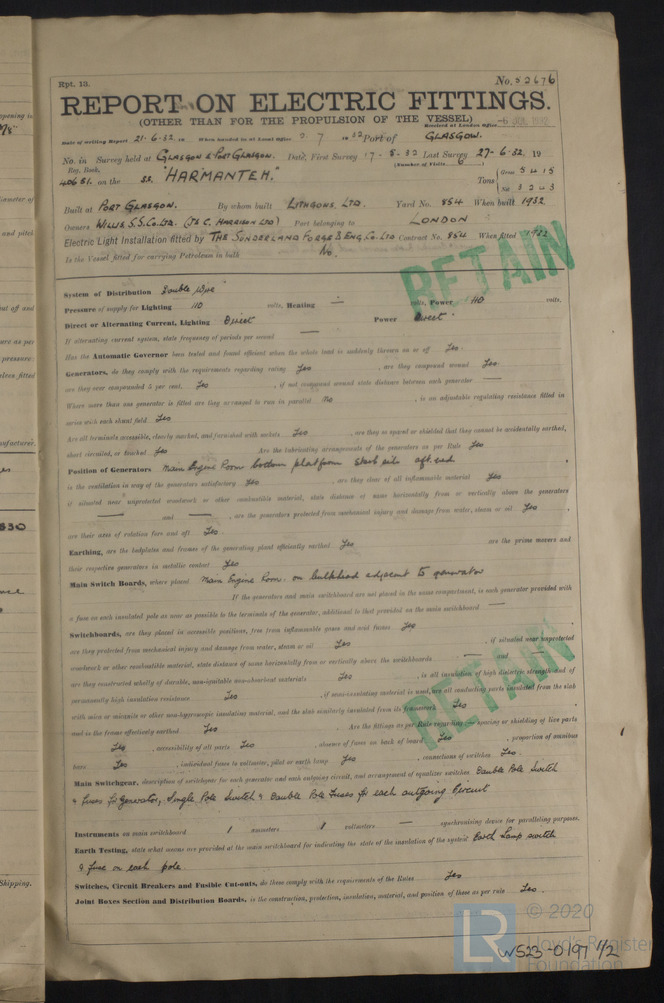 Rpt. 13.
No. 52676
REPORT ON ELECTRIC FITTINGS.
(OTHER THAN FOR THE PROPULSION OF THE VESSEL)
Received at London Office
Date of writing Report 21-6-32 19 When handed in at Local Office 2. 7 19 32 Port of GLASGOW.
No. in Survey held at GLASGOW & PORT GLASGOW. Date, First Survey 17-5-32 Last Survey 27-6-32. 19
Reg. Book, (Number of Visits
40651. on the SS. "HARMANTEH." Tons { Gross 5415
Net 3243
Built at PORT GLASGOW. By whom built LITHGOWS, LTD. Yard No. 854 When built 1932
Owners WILLIS S.S.Co.LTD. (J & C. HARRISON LTD) Port belonging to LONDON
Electric Light Installation fitted by THE SUNDERLAND FORGE & ENG. Co. LTD Contract No. 854 When fitted 1932
Is the Vessel fitted for carrying Petroleum in bulk No.
RETAIN
System of Distribution Double Wire
Pressure of supply for Lighting 110 volts, Heating — volts, Power 110 volts.
Direct or Alternating Current, Lighting Direct Power Direct
If alternating current system, state frequency of periods per second —
Has the Automatic Governor been tested and found efficient when the whole load is suddenly thrown on or off Yes.
Generators, do they comply with the requirements regarding rating Yes, are they compound wound Yes.
are they over compounded 5 per cent. Yes, if not compound wound state distance between each generator —
Where more than one generator is fitted are they arranged to run in parallel No, is an adjustable regulating resistance fitted in
series with each shunt field Yes
Are all terminals accessible, clearly marked, and furnished with sockets Yes, are they so spaced or shielded that they cannot be accidentally earthed,
short circuited, or touched Yes Are the lubricating arrangements of the generators as per Rule Yes
Position of Generators Main Engine Room bottom platform starb side aft. end
is the ventilation in way of the generators satisfactory Yes, are they clear of all inflammable material Yes
if situated near unprotected woodwork or other combustible material, state distance of same horizontally from or vertically above the generators
— and —, are the generators protected from mechanical injury and damage from water, steam or oil Yes,
are their axes of rotation fore and aft Yes
Earthing, are the bedplates and frames of the generating plant efficiently earthed Yes are the prime movers and
their respective generators in metallic contact Yes
Main Switch Boards, where placed Main Engine Room. on bulkhead adjacent to generator
If the generators and main switchboard are not placed in the same compartment, is each generator provided with
a fuse on each insulated pole as near as possible to the terminals of the generator, additional to that provided on the main switchboard —
Switchboards, are they placed in accessible positions, free from inflammable gases and acid fumes Yes
are they protected from mechanical injury and damage from water, steam or oil Yes, if situated near unprotected
woodwork or other combustible material, state distance of same horizontally from or vertically above the switchboards — and —
are they constructed wholly of durable, non-ignitable non-absorbent materials Yes, is all insulation of high dielectric strength and of
permanently high insulation resistance Yes, if semi-insulating material is used, are all conducting parts insulated from the slab
with mica or micanite or other non-hygroscopic insulating material, and the slab similarly insulated from its framework Yes
and is the frame effectively earthed Yes. Are the fittings as per Rule regarding:— spacing or shielding of live parts
Yes, accessibility of all parts Yes, absence of fuses on back of board Yes, proportion of omnibus
bars Yes, individual fuses to voltmeter, pilot or earth lamp Yes, connections of switches Yes.
RETAIN
Main Switchgear, description of switchgear for each generator and each outgoing circuit, and arrangement of equalizer switches Double Pole Switch
& fuses for Generator, Single Pole Switch & Double Pole Fuses for each outgoing Circuit
Instruments on main switchboard 1 ammeters 1 voltmeters — synchronising device for paralleling purposes.
Earth Testing, state what means are provided at the main switchboard for indicating the state of the insulation of the system Earth Lamp switch
& fuse on each pole.
Switches, Circuit Breakers and Fusible Cut-outs, do these comply with the requirements of the Rules Yes
Joint Boxes Section and Distribution Boards, is the construction, protection, insulation, material, and position of these as per rule Yes.
© 2020
LR
Lloyd's Register
Foundation
W523-0197 1/2
pening is
and pitch
out off and
ure as per
pressure:
830
Shipping.